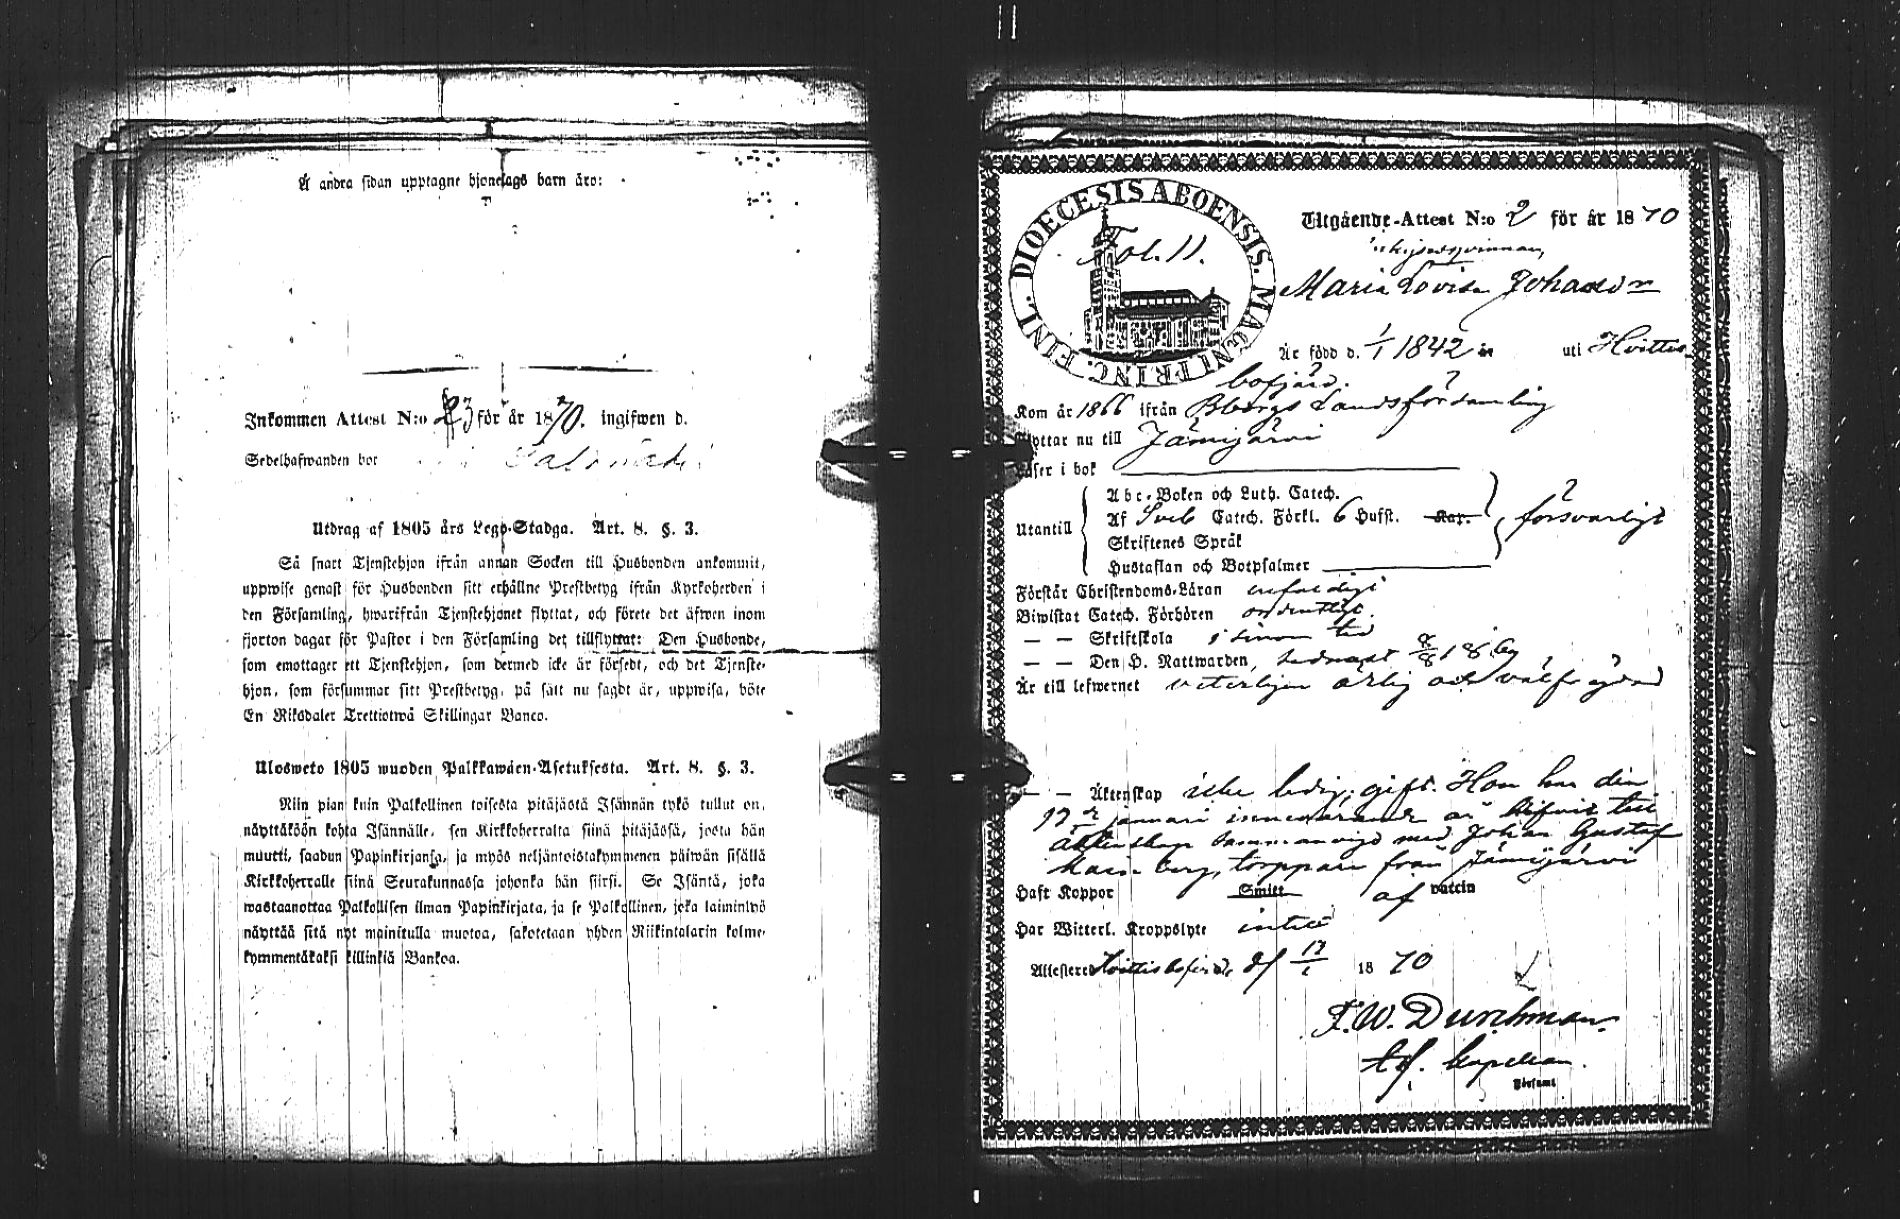 Å andra sidan upptagne hjonelags barn äro:
Inkommen Attest N:o 23 för år 1870. ingifwen d.
Sedelhafwanden bor
Utdrag af 1805 års Lego-Stadga. Art. 8. §. 3.
Så snart Tjenstehjon ifrån annan Socken till Husbonden ankommit,
uppwise genast för Husbonden sitt erhållne Prestbetyg ifrån Kyrkoherden i
den Församling, hwarifrån Tjenstehjonet flyttat, och förete det äfwen inom
fjorton dagar för Pastor i den Församling det tillflyttat: Den Husbonde,
som emottager ett Tjenstehjon, som dermed icke är försedt, och det Tjenste-
hjon, som försummar sitt Prestbetyg, på sätt nu sagdt är, uppwisa, böte
En Riksdaler Trettiotwå Skillingar Banco.
Ulosweto 1805 wuoden Palkkawäen-Asetuksesta. Art. 8. §. 3.
Niin pian kuin Palkollinen toisesta pitäjästä Isännän tykö tullut on,
näyttäköön kohta Isännälle, sen Kirkkoherralta siinä pitäjässä, josta hän
muutti, saadun Papinkirjansa, ja myös neljäntoistakymmenen päiwän sisällä
Kirkkoherralle siinä Seurakunnassa johonka hän siirsi. Se Isäntä, joka
wastaanottaa Palkollisen ilman Papinkirjata, ja se Palkollinen, joka laiminlyö
näyttää sitä nyt mainitulla muotoa, sakotetaan yhden Riikintalarin kolme-
kymmentäkaksi killinkiä Bankoa.
FINL. DIOECESIS ABOENSIS. MAGNI PRINC.
Fol. 11.
Utgående-Attest N:o 2 för år 1870
Maria Lovisa Johansdr
Är född d. 1/1 1842 uti Hvittis
bofjärd.
Kom år 1866 ifrån Bborgs Landsförsamling
Flyttar nu till Jämijärvi
Läser i bok
Utantill
Abc-Boken och Luth. Catech.
Af Sveb Catech. Förkl. 6 Hufst. Kap.
Skriftenes Språk
Hustaflan och Botpsalmer
försvarligt
Förstår Christendoms-Läran enfaldigt
Biwistat Catech. Förhören ordentligt
— — Skriftskola i sinom tid
— — Den H. Nattwarden, sednast 8/8 1869
Är till lefwernet veterligen ärlig och välfrägdad
— — Äktenskap icke ledig, gift. Hon har den
17de januari innevarande år blifvit till
äktenskap sammanvigd med Johan Gustaf
torpare från Jämijärvi
Haft Koppor Smitt af vaccin
Har Witterl. Kroppslyte intet
Attesterar Hvittisbofjärd d 17/1 1870
F. W. Durchman.
tf. Capellan.
Församl